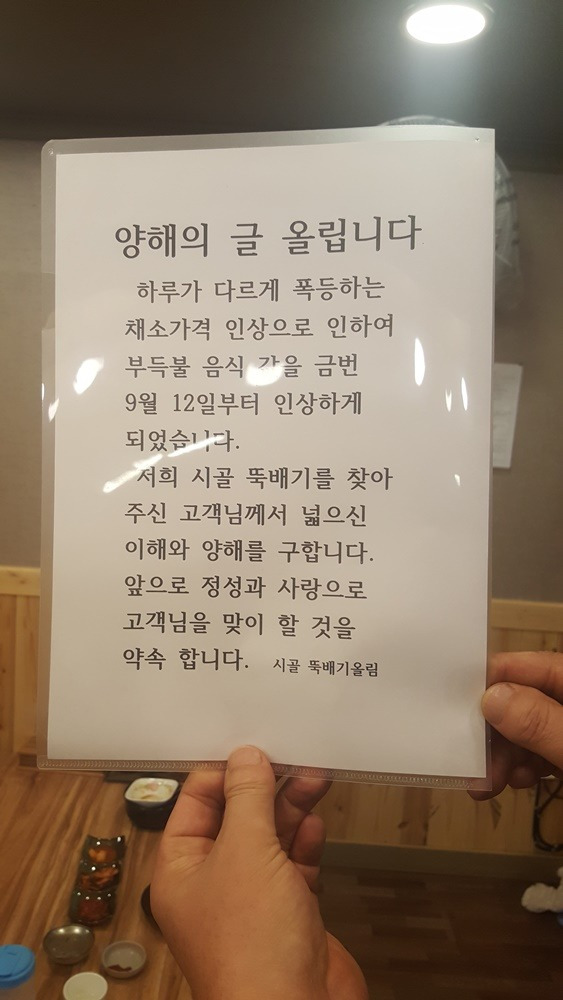 양해의 글 올립니다
하루가 다르게 폭등하는
채소가격 인상으로 인하여
부득불 음식 값을 금번
9월 12일부터 인상하게
되었습니다.
저희 시골 뚝배기를 찾아
주신 고객님께서 넓으신
이해와 양해를 구합니다.
앞으로 정성과 사랑으로
고객님을 맞이 할 것을
약속 합니다. 시골 뚝배기올림